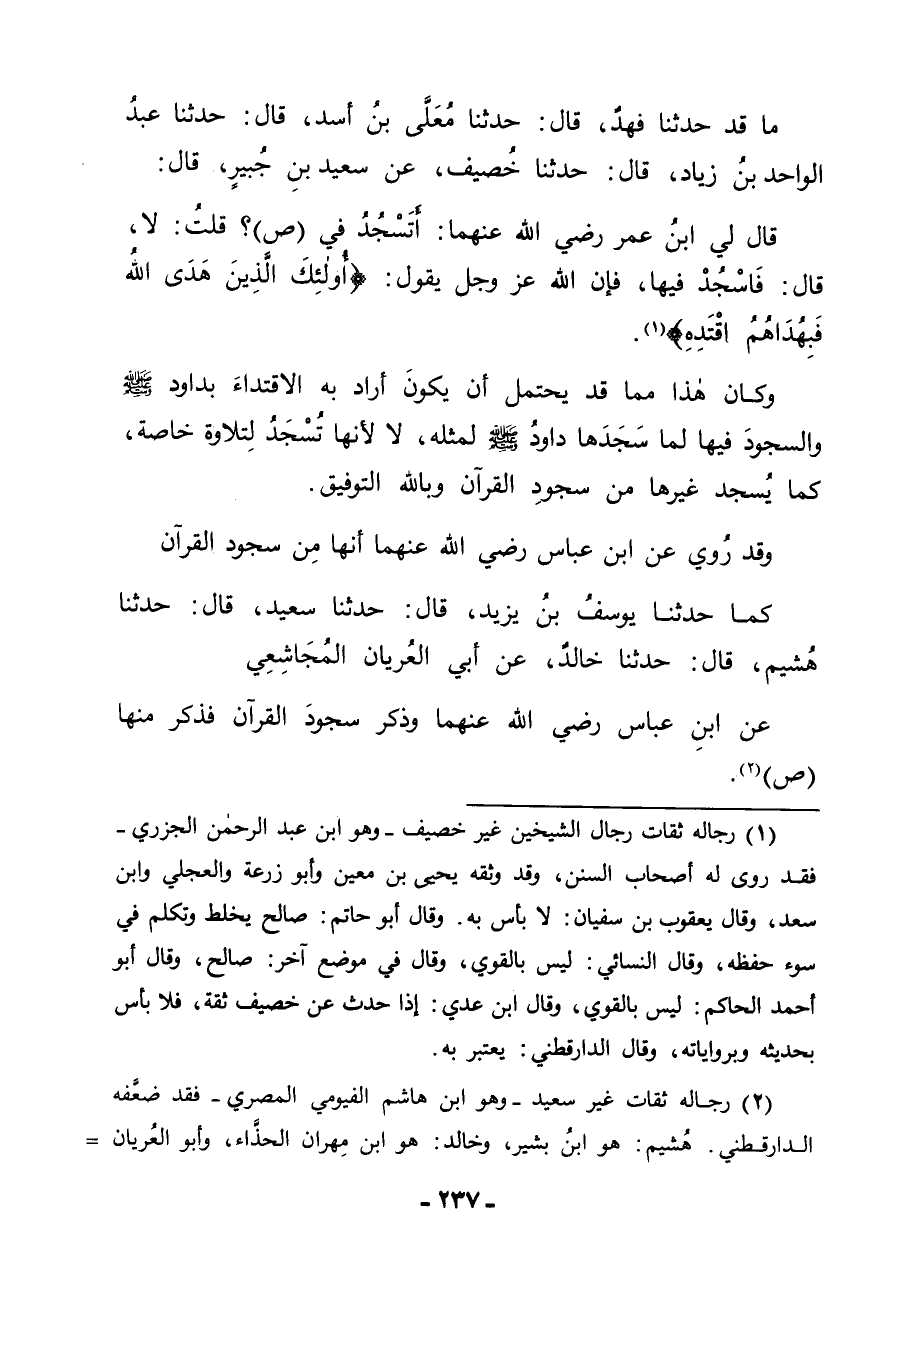 ما قد حدثنا فهدٌ، قال: حدثنا مُعَلَّى بنُ أسد، قال: حدثنا عبدُ
الواحد بنُ زياد، قال: حدثنا خُصيف، عن سعيد بنِ جُبيرٍ، قال:
قال لي ابنُ عمر رضي الله عنهما: أَتَسْجُدُ في (ص)؟ قلتُ: لا،
قال: فَاسْجُدْ فيها، فإن الله عز وجل يقول: ﴿أُولٰئِكَ الَّذِينَ هَدَى اللهُ
فَبِهُدَاهُمُ اقْتَدِهِ﴾(١).
وكـان هٰذا مما قد يحتمل أن يكونَ أراد به الاقتداءَ بداود ﷺ
والسجودَ فيها لما سَجَدَها داودُ ﷺ لمثله، لا لأنها تُسْجَدُ لِتلاوة خاصة،
كما يُسجد غيرها من سجودِ القرآن وبالله التوفيق.
وقد رُوي عن ابن عباس رضي الله عنهما أنها مِن سجود القرآن
كمـا حدثنـا يوسفُ بنُ يزيد، قال: حدثنا سعيد، قال: حدثنا
هُشيم، قال: حدثنا خالدٌ، عن أبي العُريان المُجَاشِعِي
عن ابنِ عباس رضي الله عنهما وذكر سجودَ القرآن فذكر منها
(ص)(٢).
(١) رجاله ثقات رجال الشيخين غير خصيف ـ وهو ابن عبد الرحمٰن الجزري ـ
فقـد روى له أصحاب السنن، وقد وثقه يحيى بن معين وأبو زرعة والعجلي وابن
سعد، وقال يعقوب بن سفيان: لا بأس به. وقال أبو حاتم: صالح يخلط وتكلم في
سوء حفظه، وقال النسائي: ليس بالقوي، وقال في موضع آخر: صالح، وقال أبو
أحمد الحاكم: ليس بالقوي، وقال ابن عدي: إذا حدث عن خصيف ثقة، فلا بأس
بحديثه وبرواياته، وقال الدارقطني: يعتبر به.
(٢) رجـاله ثقات غير سعيد ـ وهو ابن هاشم الفيومي المصري ـ فقد ضعَّفه
الـدارقـطني. هُشيم: هو ابنُ بشير، وخالد: هو ابن مِهران الحذَّاء، وأبو العُريان =
ـ ٢٣٧ ـ